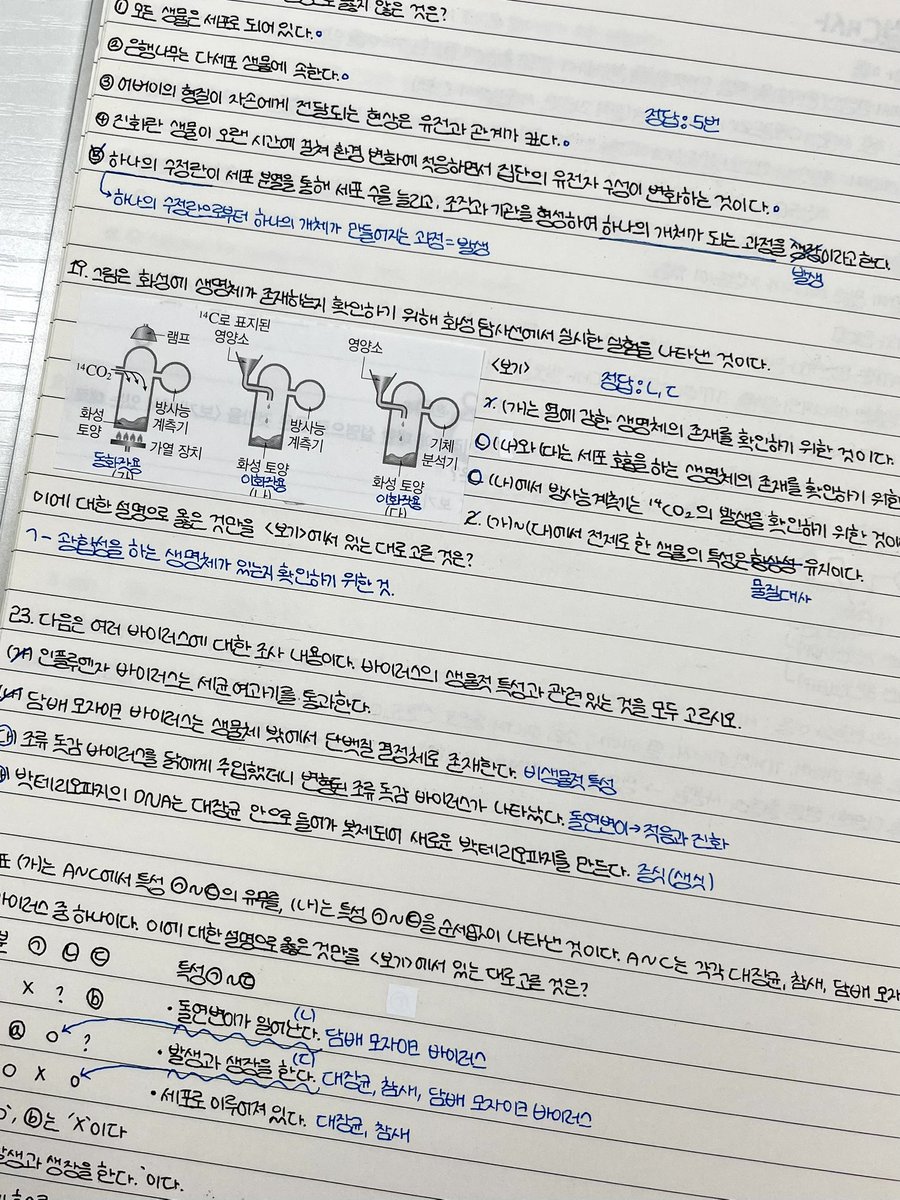 옳지 않은 것은?
① 모든 생물은 세포로 되어 있다.
② 은행나무는 다세포 생물에 속한다.
③ 어버이의 형질이 자손에게 전달되는 현상은 유전과 관계가 깊다.
정답: 5번
④ 진화란 생물이 오랜 시간에 걸쳐 환경 변화에 적응하면서 집단의 유전자 구성이 변화하는 것이다.
⑤ 하나의 수정란이 세포 분열을 통해 세포 수를 늘리고, 조직과 기관을 형성하여 하나의 개체가 되는 과정을 생장이라고 한다.
발생
↳하나의 수정란으로부터 하나의 개체가 만들어지는 과정 = 발생
19. 그림은 화성에 생명체가 존재하는지 확인하기 위해 화성 탐사선에서 실시한 실험을 나타낸 것이다.
램프
¹⁴CO₂
방사능 계측기
화성 토양
가열 장치
동화작용
(가)
¹⁴C로 표지된 영양소
방사능 계측기
화성 토양
이화작용
(나)
영양소
기체 분석기
화성 토양
이화작용
(다)
<보기>
정답: ㄴ, ㄷ
ㄱ. (가)는 열에 강한 생명체의 존재를 확인하기 위한 것이다.
(나)와 (다)는 세포 호흡을 하는 생명체의 존재를 확인하기 위한
(나)에서 방사능 계측기는 ¹⁴CO₂의 발생을 확인하기 위한 것이
ㄹ. (가)~(다)에서 전제로 한 생물의 특성은 항상성 유지이다.
물질대사
이에 대한 설명으로 옳은 것만을 <보기>에서 있는 대로 고른 것은?
ㄱ - 광합성을 하는 생명체가 있는지 확인하기 위한 것.
23. 다음은 여러 바이러스에 대한 조사 내용이다. 바이러스의 생물적 특성과 관련 있는 것을 모두 고르시오.
(가) 인플루엔자 바이러스는 세균 여과기를 통과한다.
(나) 담배 모자이크 바이러스는 생물체 밖에서 단백질 결정체로 존재한다. 비생물적 특성
(다) 조류 독감 바이러스를 닭에게 주입했더니 변형된 조류 독감 바이러스가 나타났다. 돌연변이→적응과 진화
박테리오파지의 DNA는 대장균 안으로 들어가 복제되어 새로운 박테리오파지를 만든다. 증식(생식)
표 (가)는 A~C에서 특성 ㉠~㉢의 유무를, (나)는 특성 ㉠~㉢을 순서없이 나타낸 것이다. A~C는 각각 대장균, 참새, 담배 모자
바이러스 중 하나이다. 이에 대한 설명으로 옳은 것만을 <보기>에서 있는 대로 고른 것은?
분 ㉠ ㉡ ㉢
X ? ⓑ
ⓐ O ?
O X O
특성 ㉠~㉢
• 돌연변이가 일어난다. (ㄴ) 담배 모자이크 바이러스
• 발생과 생장을 한다. (ㄷ) 대장균, 참새, 담배 모자이크 바이러스
• 세포로 이루어져 있다. 대장균, 참새
ⓑ는 'X'이다
발생과 생장을 한다.'이다.